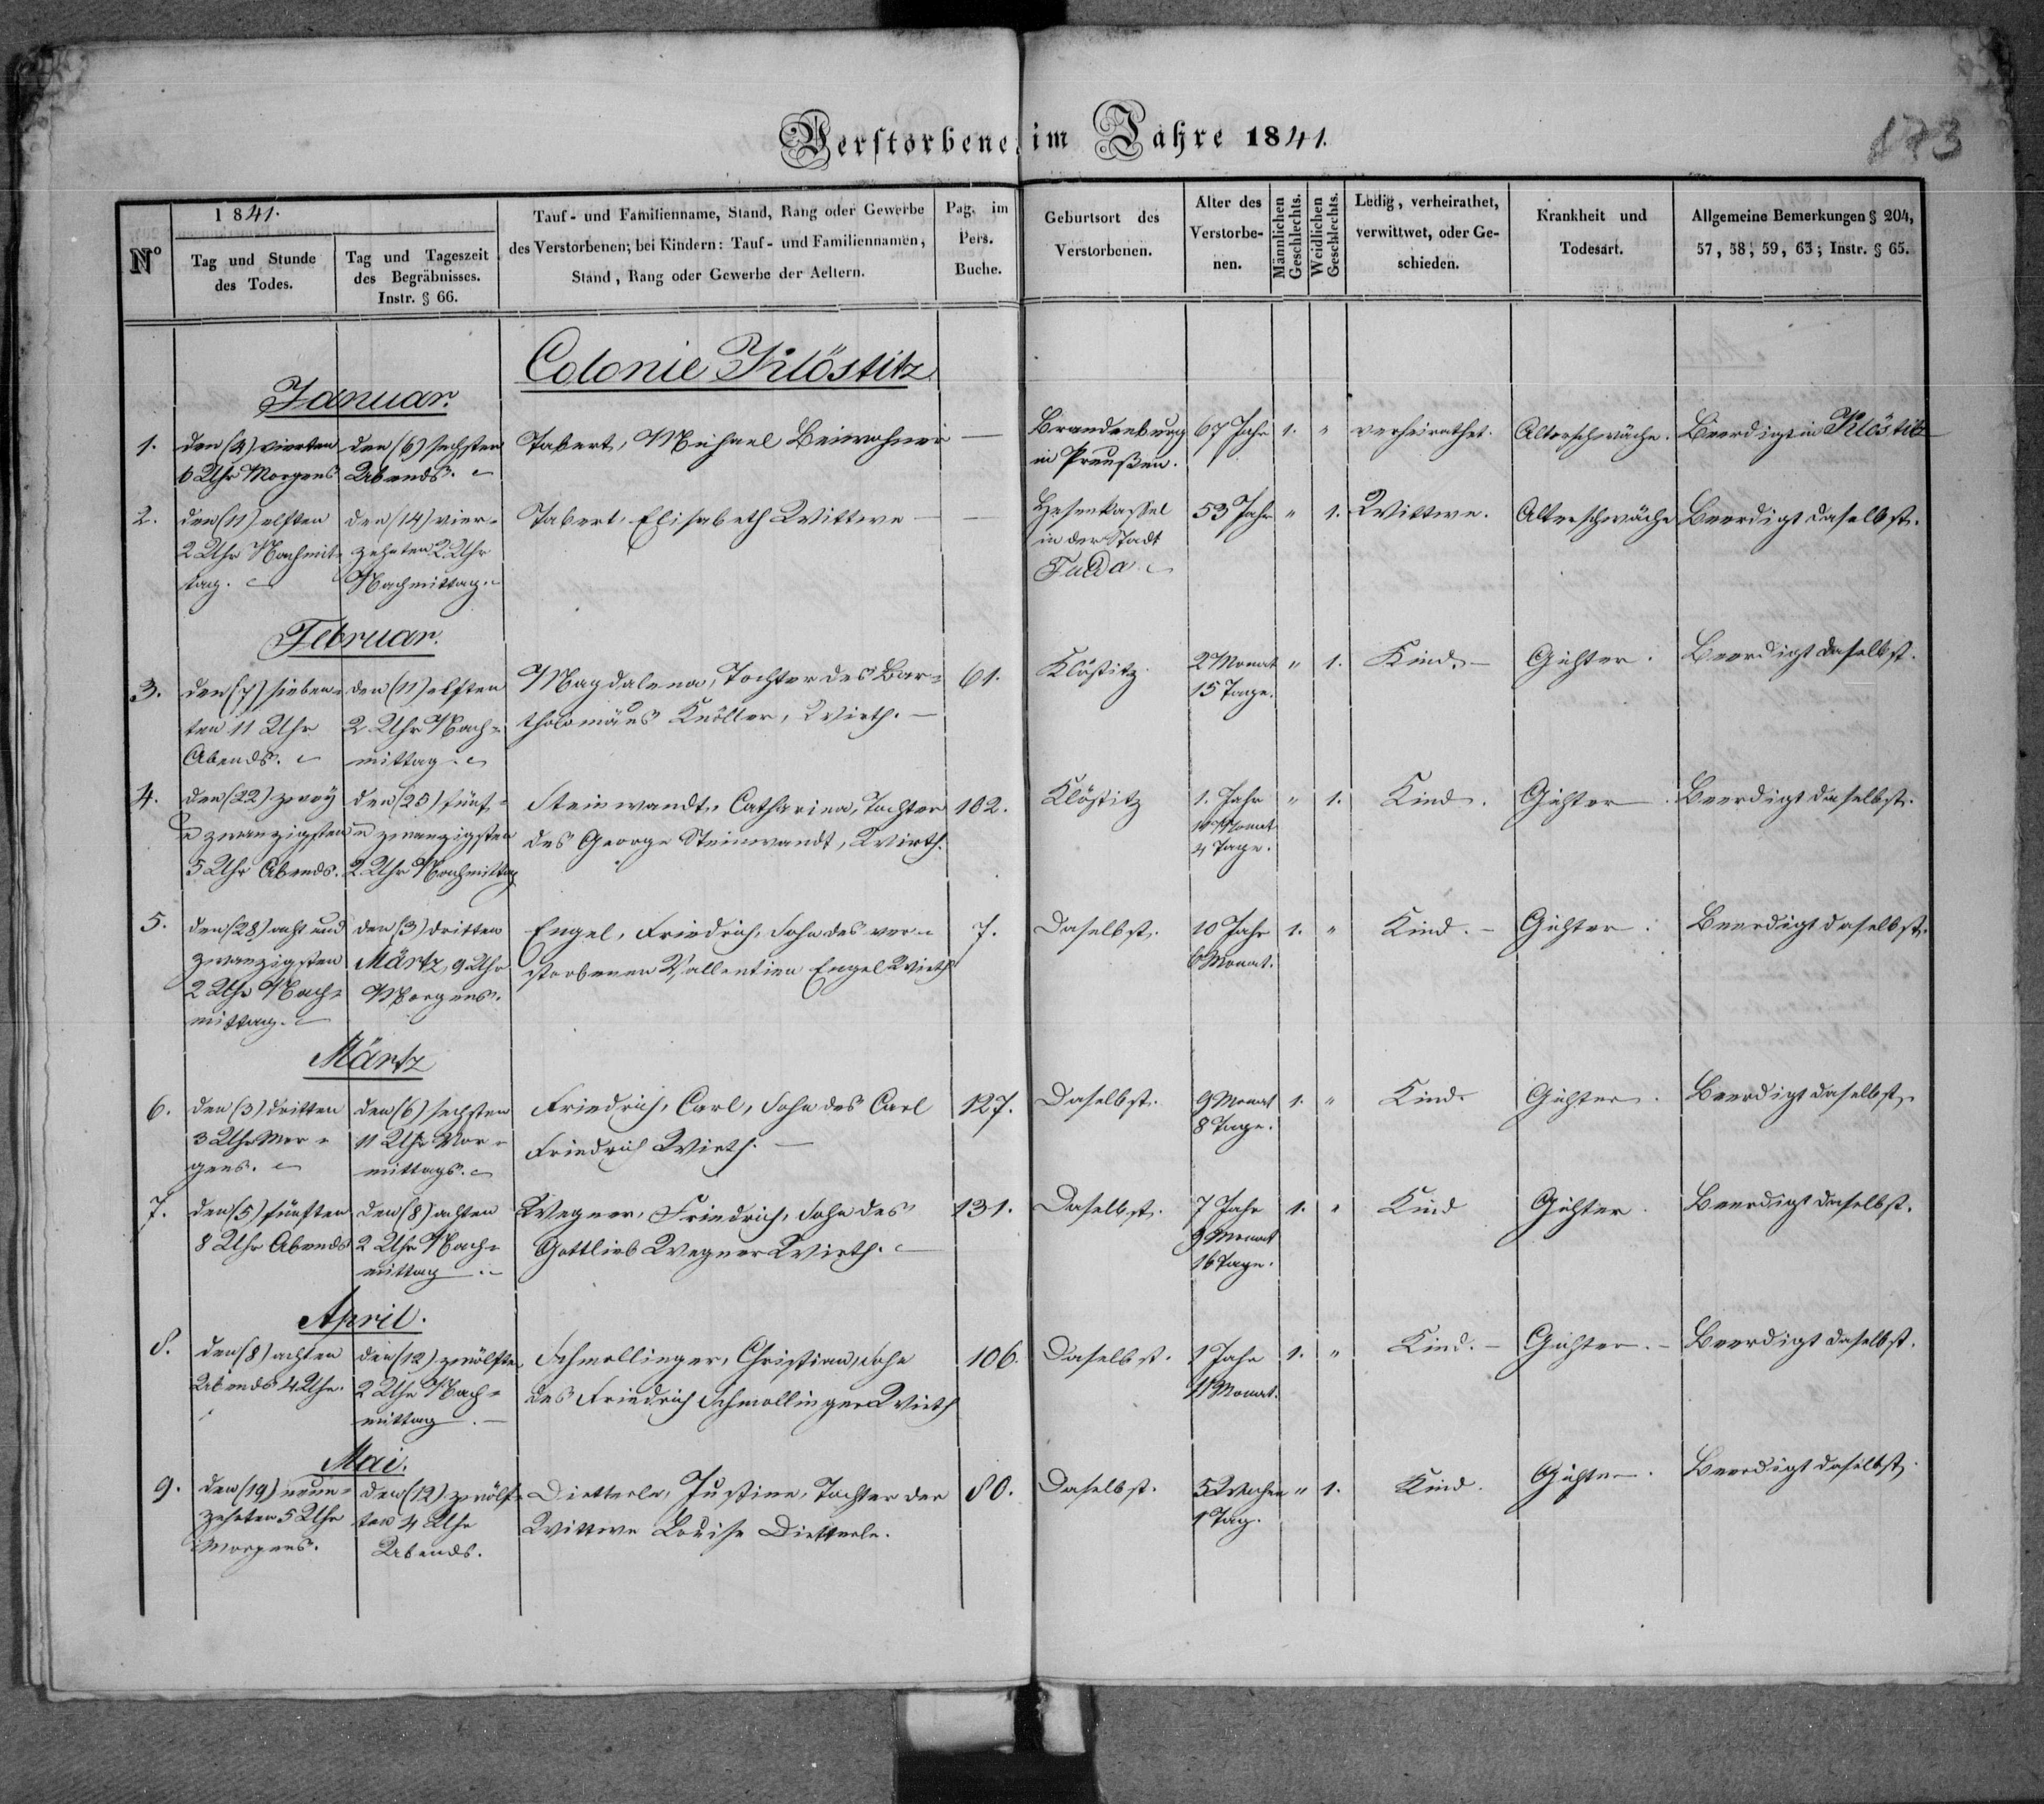 Verstorbene im Jahre 1841.
173
Nº
1841.
Tag und Stunde
des Todes.
Tag und Tageszeit
des Begräbnisses.
Instr. § 66.
Tauf- und Familienname, Stand, Rang oder Gewerbe
des Verstorbenen; bei Kindern: Tauf- und Familiennamen,
Stand, Rang oder Gewerbe der Aeltern.
Pag. im
Pers.
Buche.
Geburtsort des
Verstorbenen.
Alter des
Verstorbe-
nen.
Männlichen
Geschlechts.
Weiblichen
Geschlechts.
Ledig, verheirathet,
verwittwet, oder Ge-
schieden.
Krankheit und
Todesart.
Allgemeine Bemerkungen § 204,
57, 58, 59, 63; Instr. § 65.
Colonie Klöstitz
Januar.
1.
den (4) vierten
6 Uhr Morgens
den (6) sechsten
Abends.
Tabert, Michael Beiwohner —
Brandenburg
in Preußen.
67 Jahr
1.
"
verheirathet.
Altersschwäche.
Beerdigt in Klöstitz
2.
den (11) elften
2 Uhr Nachmit-
tag.
den (14) vier-
zehnten 2 Uhr
Nachmittag.
Tabert, Elisabeth Wittwe —
Hesenkassel
in der Stadt
Fulda
53 Jahr
"
1.
Wittwe.
Altersschwäche
Beerdigt daselbst.
Februar.
3.
den (7) sieben-
ten 11 Uhr
Abends.
den (11) elften
2 Uhr Nach-
mittag.
Magdalena, Tochter des Bar-
tholomäus Knöller, Wirth. —
61.
Klöstitz
2 Monat
15 Tage.
"
1.
Kind. —
Gichter.
Beerdigt daselbst.
4.
den (22) zwey
u zwanzigsten
5 Uhr Abends.
den (25) fünf-
u zwanzigsten
2 Uhr Nachmittag
Steinwandt, Catharina, Tochter
des George Steinwandt, Wirth.
102.
Klöstitz
1. Jahr
Monat
4 Tage.
"
1.
Kind.
Gichter.
Beerdigt daselbst.
5.
den (28) acht und
zwanzigsten
2 Uhr Nach-
mittag.
den (3) dritten
Märtz, 9 Uhr
Morgens.
Engel, Friedrich, Sohn des ver-
storbenen Vallentien Engel Wirth
7.
Daselbst.
10 Jahr
6 Monat.
1.
"
Kind. —
Gichter.
Beerdigt daselbst.
Märtz
6.
den (3) dritten
3 Uhr Mor-
gens.
den (6) sechsten
11 Uhr Vor-
mittags.
Friedrich, Carl, Sohn des Carl
Friedrich Wirth. —
127.
Daselbst.
9 Monat
8 Tage.
1.
"
Kind.
Gichter.
Beerdigt daselbst.
7.
den (5) fünften
8 Uhr Abends
den (8) achten
2 Uhr Nach-
mittag.
Wegner, Friedrich, Sohn des
Gottlieb Wegner Wirth. —
131.
Daselbst.
7 Jahr
9 Monat
16 Tage.
1.
"
Kind
Gichter.
Beerdigt daselbst.
April.
8.
den (8) achten
Abends 4 Uhr.
den (12) zwölften
2 Uhr Nach-
mittag. —
Schmollinger, Christian, Sohn
des Friedrich Schmollinger Wirth
106.
Daselbst.
1 Jahr
11 Monat.
1.
"
Kind. —
Gichter. —
Beerdigt daselbst.
Mai.
9.
den (19) neun-
zehnten 5 Uhr
Morgens.
den (12) zwölf-
ten 4 Uhr
Abends.
Dietterle, Justine, Tochter der
Wittwe Louise Dietterle.
80.
Daselbst.
5 Wochen
1 Tag.
"
1.
Kind.
Gichter.
Beerdigt daselbst.